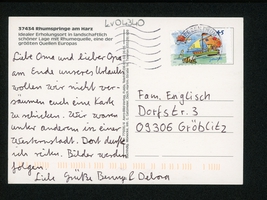 LV04340
37434 Rhumspringe am Harz
Idealer Erholungsort in landschaftlich
schöner Lage mit Rhumequelle, eine der
größten Quellen Europas
Liebe Oma und lieber Opa
am Ende unseres Urlaubes
wollen wir nicht ver-
säumen euch eine Karte
zu schicken. Wir waren
unter anderem in einer
Westernstadt. Dort durfte
ich reiten. Bilder werden
folgen.
Liebe Grüße Benny &
Fam. Englisch
Dorfstr. 3
09306 Gröblitz